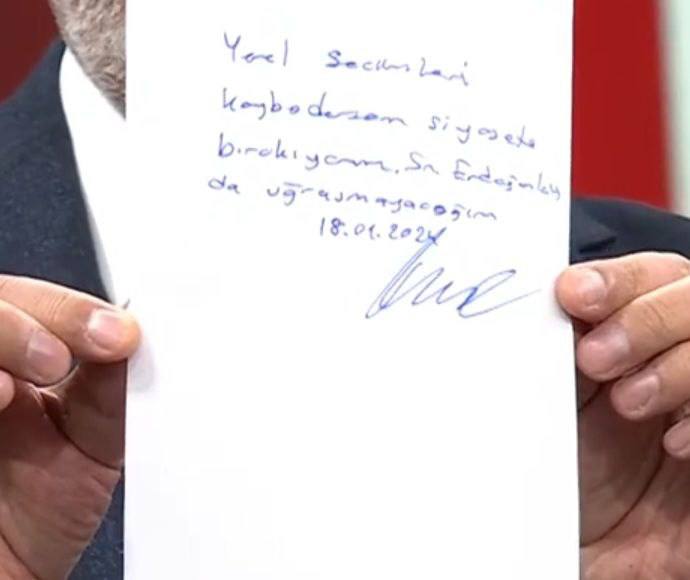 Yerel Seçimleri
kaybedersem siyasete
bırakıyorum. Sn Erdoğanla
da uğraşmayacağım
18.01.2024